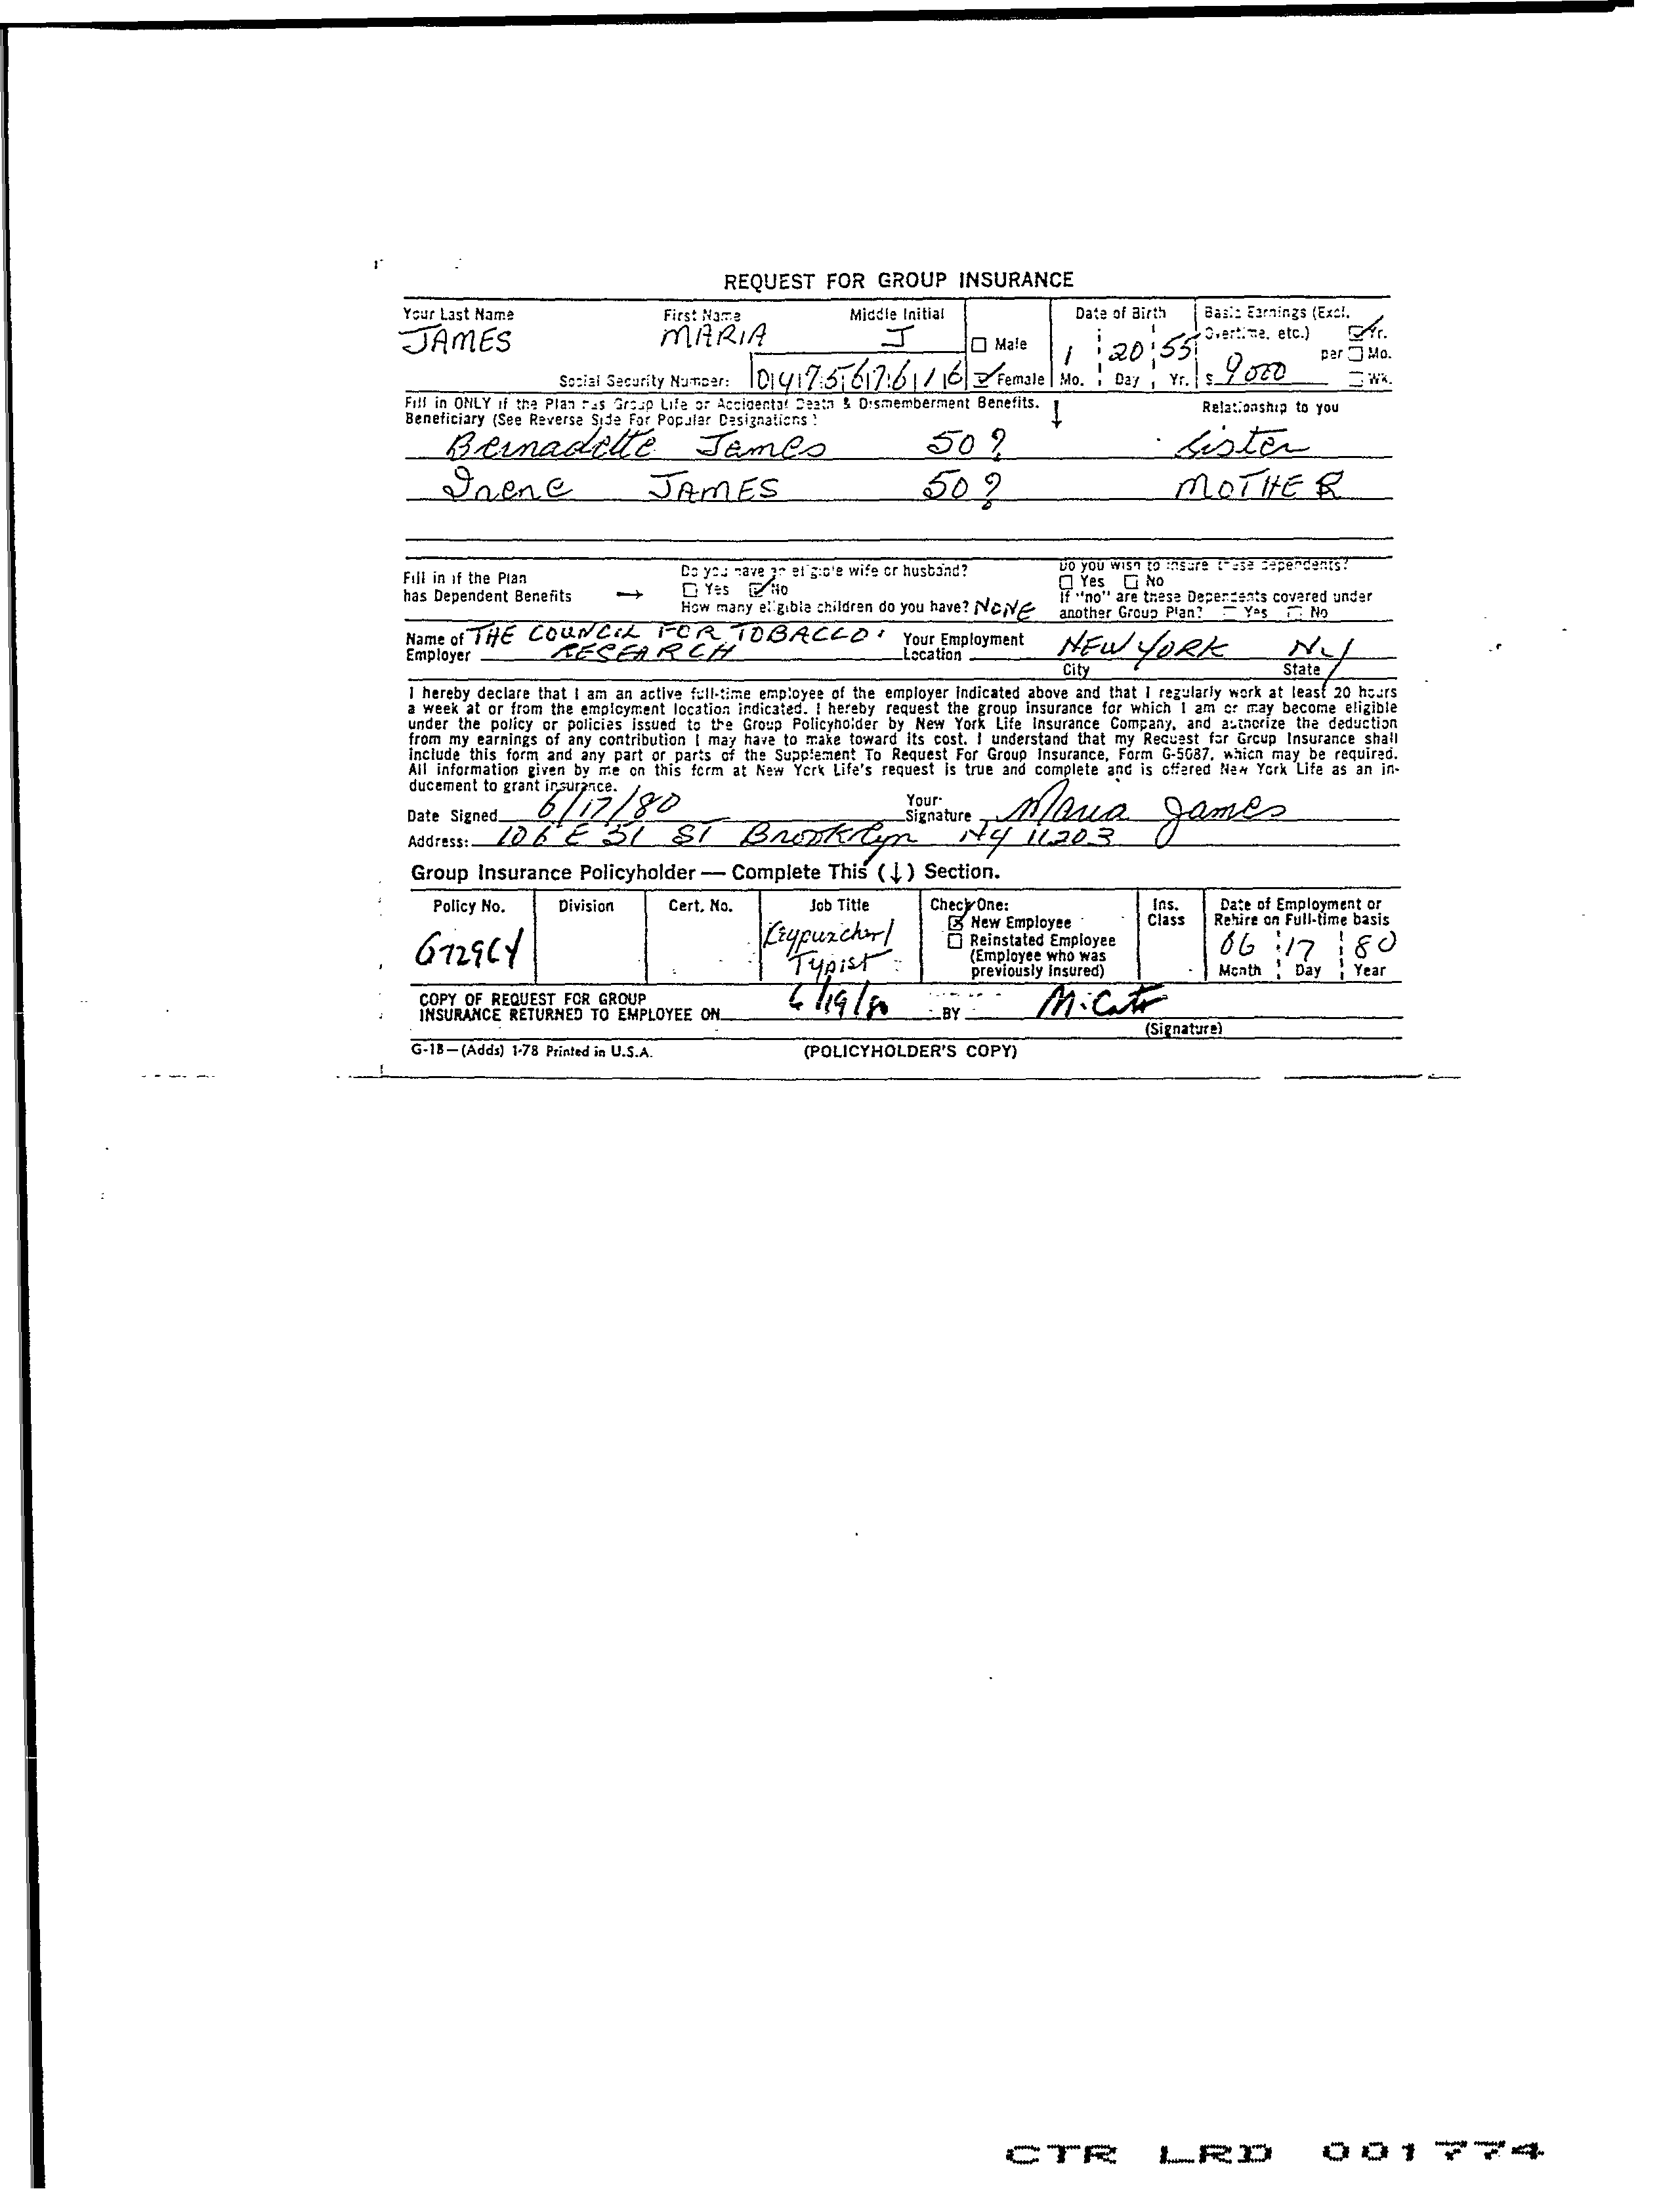 REQUEST FOR GROUP INSURANCE
Your Last Name First Name Middle Initial Date of Birth Basic Earnings (Excl. Overtime, etc.)
JAMES MARIA J Male 1 20 55 $ 9000 per Yr. Mo. Wk.
Social Security Number: 047567616 Female Mo. Day Yr.
Fill in ONLY if the Plan has Group Life or Accidental Death & Dismemberment Benefits. ↓ Relationship to you
Beneficiary (See Reverse Side For Popular Designations)
Bernadette James 50 ? Sister
Irene JAMES 50 ? MOTHER
Fill in if the Plan has Dependent Benefits →
Do you have an eligible wife or husband?
Yes No
How many eligible children do you have? NONE
Do you wish to insure these dependents?
Yes No
If "no" are these Dependents covered under
another Group Plan? Yes No
Name of Employer THE COUNCIL FOR TOBACCO
RESEARCH
Your Employment Location NEW YORK NY
City State
I hereby declare that I am an active full-time employee of the employer indicated above and that I regularly work at least 20 hours
a week at or from the employment location indicated. I hereby request the group insurance for which I am or may become eligible
under the policy or policies issued to the Group Policyholder by New York Life Insurance Company, and authorize the deduction
from my earnings of any contribution I may have to make toward its cost. I understand that my Request for Group Insurance shall
include this form and any part or parts of the Supplement To Request For Group Insurance, Form G-5087, which may be required.
All information given by me on this form at New York Life's request is true and complete and is offered New York Life as an in-
ducement to grant insurance.
Date Signed 6/17/80 Your Signature Maria James
Address: 106 E 51 ST Brooklyn NY 11203
Group Insurance Policyholder — Complete This (↓) Section.
Policy No. Division Cert. No. Job Title Check One: Ins. Class Date of Employment or
Rehire on Full-time basis
G729CY Keypuncher/
Typist
New Employee
Reinstated Employee
(Employee who was
previously insured)
06 17 80
Month Day Year
COPY OF REQUEST FOR GROUP
INSURANCE RETURNED TO EMPLOYEE ON 6/19/80 BY
(Signature)
G-18—(Adds) 1-78 Printed in U.S.A. (POLICYHOLDER'S COPY)
CTR LRD 001774